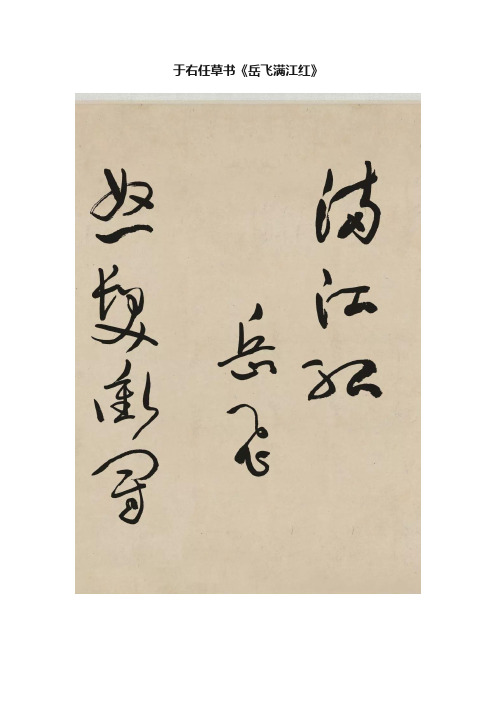 于右任草书《岳飞满江红》
满江红
岳飞
怒髮衝冠